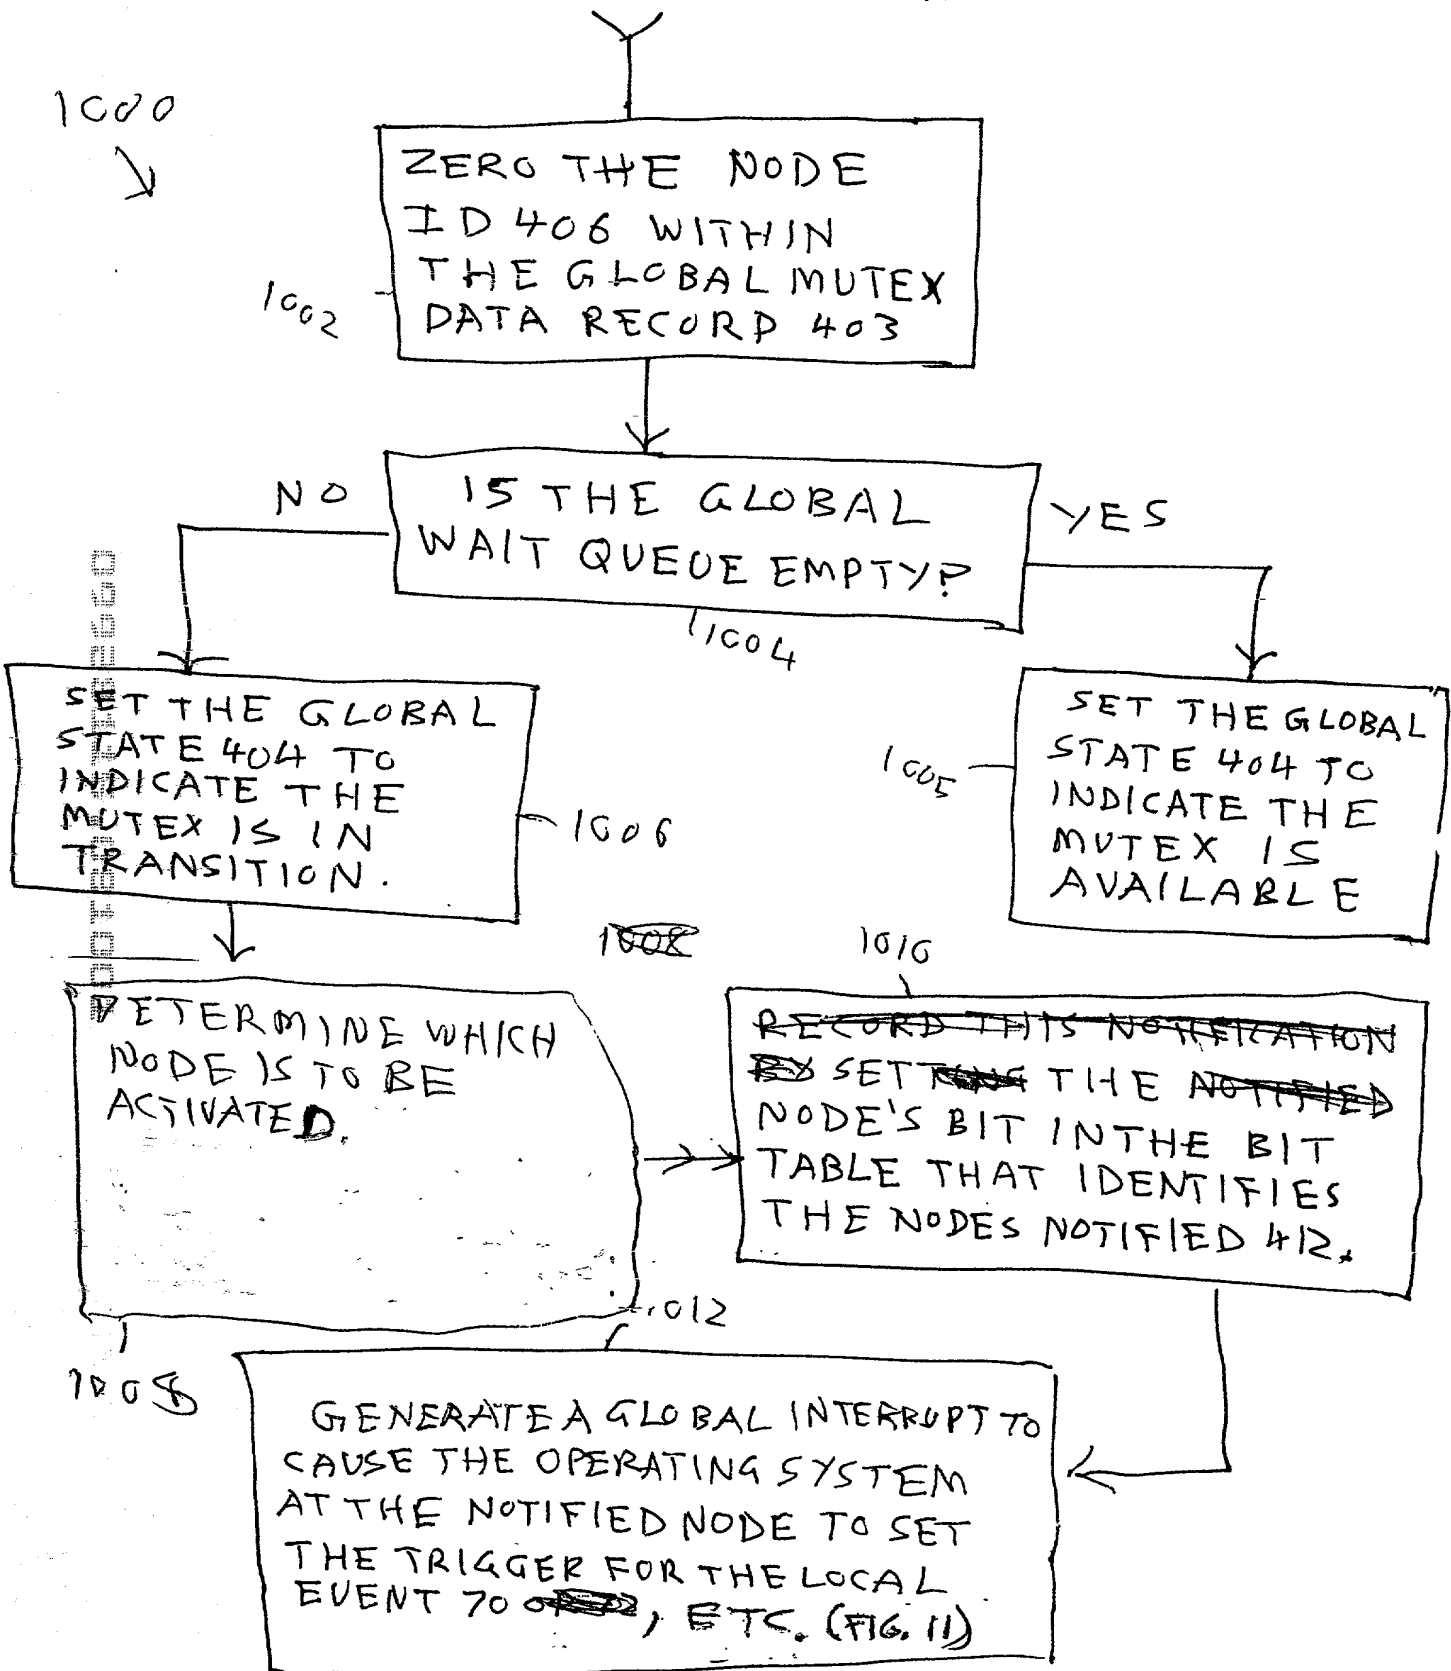 1000
ZERO THE NODE
ID 406 WITHIN
THE GLOBAL MUTEX
DATA RECORD 403
1002
NO
IS THE GLOBAL
WAIT QUEUE EMPTY?
YES
1004
SET THE GLOBAL
STATE 404 TO
INDICATE THE
MUTEX IS IN
TRANSITION.
1006
SET THE GLOBAL
STATE 404 TO
INDICATE THE
MUTEX IS
AVAILABLE
1005
1008
DETERMINE WHICH
NODE IS TO BE
ACTIVATED.
1008
1010
RECORD THIS NOTIFICATION
BY SETTING THE NOTIFIED
NODE'S BIT IN THE BIT
TABLE THAT IDENTIFIES
THE NODES NOTIFIED 412.
1012
GENERATE A GLOBAL INTERRUPT TO
CAUSE THE OPERATING SYSTEM
AT THE NOTIFIED NODE TO SET
THE TRIGGER FOR THE LOCAL
EVENT 70, ETC. (FIG. 11)